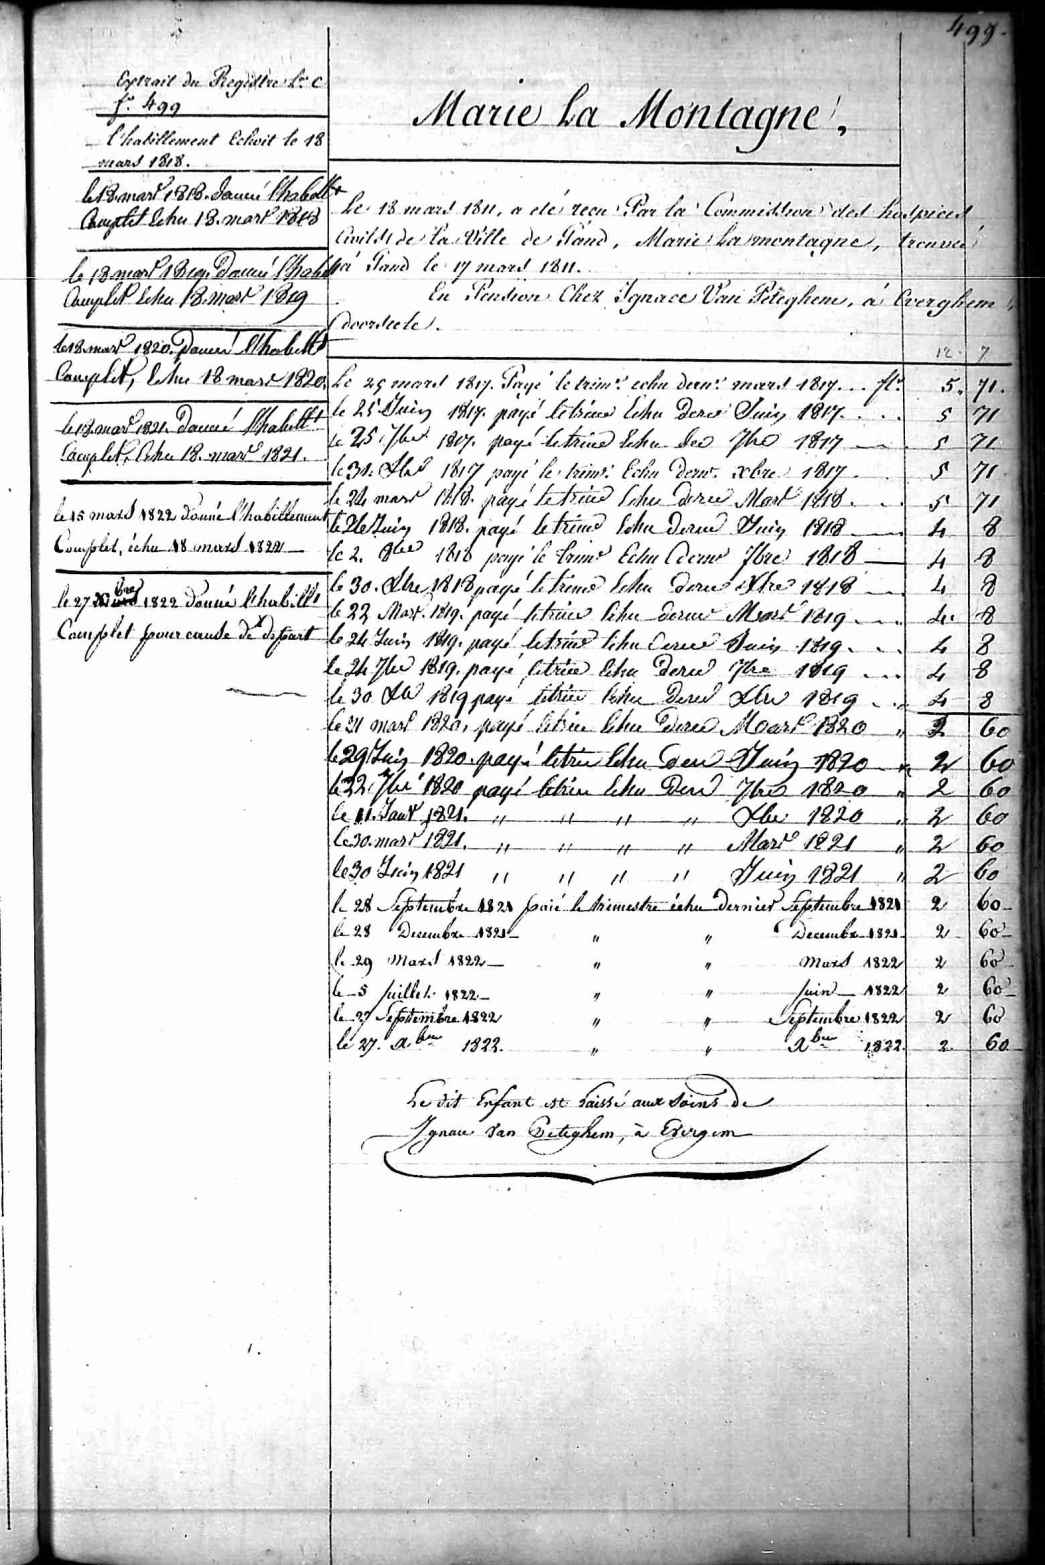 499.
Extrait du Registre Lra C
fo. 499
l'habillement Echoit le 18
mars 1818.
le 18 mars 1818. Donné l'habillt
Complet Echu 18 mars 1818
le 18 mars 1819 Donné l'habillt
Complet Echu 18 mars 1819
le 18 mars 1820. Donné l'habillt
Complet, Echu 18 mars 1820.
le 18 mars 1821. Donné l'habillt
Complet, Echu 18. mars 1821.
le 15 mars 1822 donné l'habillement
Complet, échu 18 mars 1822
le 27 Xbre 1822 donné l'habillt
Complet pour cause de départ
Marie La Montagne,
Le 18 mars 1811, a été recu Par la Commission des hospices
Civils de la Ville de Gand, Marie La montagne, trouvé
à Gand le 17 mars 1811.
En Pension Chez Ignace Van Peteghem, à Everghem
doorseele.
12. 7
Le 25 mars 1817. Payé le trimr. echu dernr. mars 1817... fls. 5. 71.
le 25 Juin 1817. payé le trime Echu derer Juin 1817. . . . 5 71
le 25 7bre 1817. payé le trime Echu der 7bre 1817 5 71
le 31. Xbre 1817 payé le trimr. Echu dernr. xbre 1817 5 71
le 24 mars 1818. payé le trime Echu derer Mars 1818. . . 5 71
le 26 Juin 1818. payé le trime Echu derer Juin 1818 4 8
le 2. 8bre 1818 payé le trime Echu derer 7bre 1818 4 8
le 30. Xbre 1818 payé le trime Echu derer Xbre 1818 4 8
le 23 Mars. 1819. payé le trime Echu derner Mars 1819 4. 8
le 24 Juin 1819. payé le trime Echu derer Juin 1819. . . 4 8
le 24 7bre 1819. payé le trime Echu derer 7bre 1819 . . . 4 8
le 30 Xbre 1819 payé le trime Echu derer Xbre 1819 . . 4 8
le 21 mars 1820, payé le trime Echu derer Mars 1820 " 2 60
le 29 Juin 1820. payé le trime Echu derer Juin 1820 " 2 60
le 22 7bre 1820 payé le trime Echu derer 7bre 1820 " 2 60
le 11. Janr 1821. " " " " Xbre 1820 " 2 60
le 30. mars 1821. " " " " Mars 1821 " 2 60
le 30 Juin 1821 " " " " Juin 1821 " 2 60
le 28 Septembre 1821 paié le trimestre échu dernier Septembre 1821 2 60
le 28 Decembre 1821 " " Decembre 1821 2 60
le 29 Mars 1822 " " Mars 1822 2 60
le 5 Juillet 1822 " " Juin 1822 2 60
le 27 Septembre 1822 " " Septembre 1822 2 60
le 27. Xbre 1822. " " Xbre 1822. 2 60
Le dit Enfant est laissé aux soins de
Ignace Van Peteghem, à Evergem